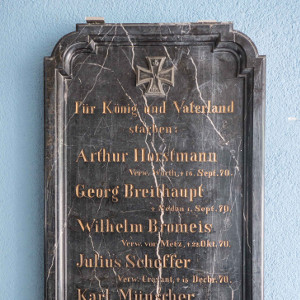 Für König und Vaterland
starben:
Arthur Horstmann
Verw. Wörth, † 16. Sept. 70.
Georg Breithaupt
† Sedan 1. Sept. 70.
Wilhelm Bromeis
Verw. vor Metz, † 21. Okt. 70.
Julius Scheffer
Verw. † 15. Decbr. 70.
Karl Münscher